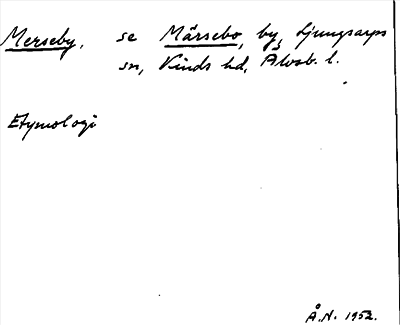 Merseby, se Märsebo, by, Ljungsarps
sn, Kinds hd, Älvsb. l.
Etymologi
Å.N. 1952.